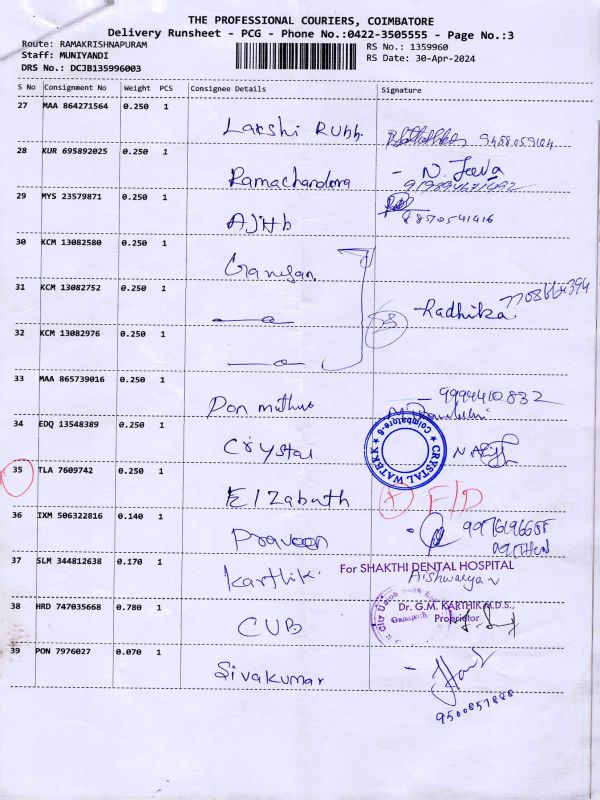 THE PROFESSIONAL COURIERS, COIMBATORE
Delivery Runsheet - PCG - Phone No.:0422-3505555 - Page No.:3
Route: RAMAKRISHNAPURAM
RS No.: 1359960
Staff: MUNIYANDI
RS Date: 30-Apr-2024
DRS No.: DCJB135996003
S No Consignment No Weight PCS Consignee Details Signature
27 MAA 864271564 0.250 1
Lakshi Rubb.
28 KUR 695892025 0.250 1
Ramachandora - N. Jeeva
29 MYS 23579871 0.250 1
8870541416
30 KCM 13082580 0.250 1
Ganesan
31 KCM 13082752 0.250 1
-Radhika
32 KCM 13082976 0.250 1
33 MAA 865739016 0.250 1
Pon muthu - 9994410832
34 EDQ 13548389 0.250 1
Crystal
CRYSTAL WATEKK ★ Coimbatore-6 ★
35 TLA 7609742 0.250 1
Elzabath F/D
36 IXM 506322816 0.140 1
Praveen
37 SLM 344812638 0.170 1
Karthik. For SHAKTHI DENTAL HOSPITAL
Aishwarya
38 HRD 747035668 0.780 1
Dr. G.M. KARTHIK M.D.S.,
Proprietor
City Union Bank
CUB
39 PON 7976027 0.070 1
Sivakumar
9500851888